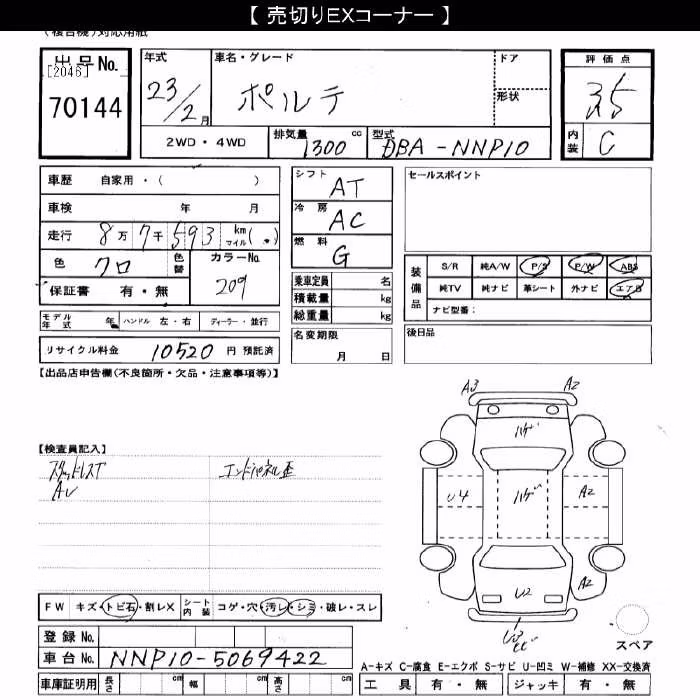 【 売切りEXコーナー 】
(複合機)対応用紙
出品No.
[2046]
70144
年式 車名・グレード ドア 評価点
23/2月 ポルテ 形状 3.5
2WD・4WD 排気量 1300 cc 型式 DBA-NNP10 内装 C
車歴 自家用・( )
車検 年 月
走行 8万7千593 km マイル(・)
色 クロ 色替 カラーNo. 209
保証書 有・無
モデル年式 年 ハンドル 左・右 ディーラー・並行
リサイクル料金 10520 円 預託済
シフト AT
冷房 AC
燃料 G
乗車定員 名
積載量 kg
総重量 kg
名変期限
月 日
セールスポイント
装備品 S/R 純A/W P/S P/W ABS
純TV 純ナビ 革シート 外ナビ エアB
ナビ型番:
後日品
【出品店申告欄(不良箇所・欠品・注意事項等)】
【検査員記入】
スタッドレスT エンドパネル歪
AU
A3 A2
ハゲ
U4 ハゲ A2
A2
U2
U3
スペア
FW キズ・トビ石・割レX シート内装 コゲ・穴・汚レ・シミ・破レ・スレ
登録No.
車台No. NNP10-5069422
車庫証明用 長さ cm 幅 cm 高さ cm
A-キズ C-腐食 E-エクボ S-サビ U-凹ミ W-補修 XX-交換済
工具 有・無 ジャッキ 有・無